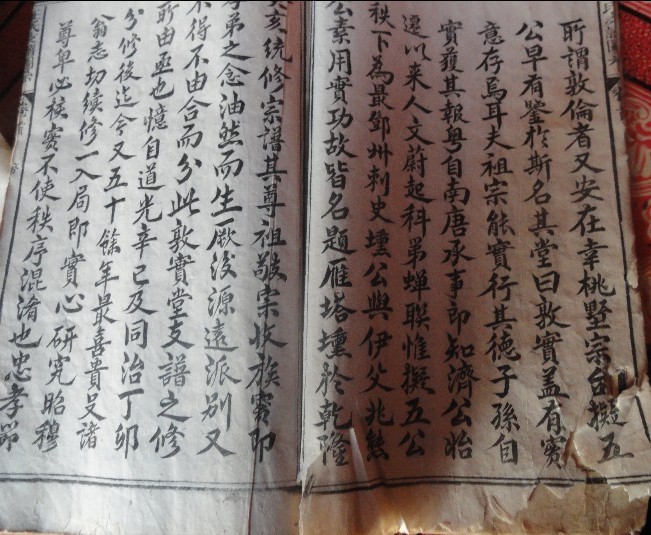 所謂敦倫者又安在幸桃墅宗台擬五
公早有鑒於斯名其堂曰敦實蓋有實
意存焉耳夫祖宗能實行其德子孫自
實獲其報粵自南唐承事郎知濟公始
遷以来人文蔚起科弟蟬聯惟擬五公
秩下為最鄧州刺史壎公與伊父兆熊
公素用實功故皆名題雁塔壎於乾隆
癸亥統修宗譜其尊祖敬宗收族實即
弟之念油然而生厥後源遠派别又
不得不由合而分此敦實堂支譜之修
所由亟也憶自道光辛巳及同治丁卯
分修後迄今又五十餘年最喜貴旻諸
翁志切續修一入局即實心研究昭穆
尊卑必核實不使秩序混淆也忠孝節